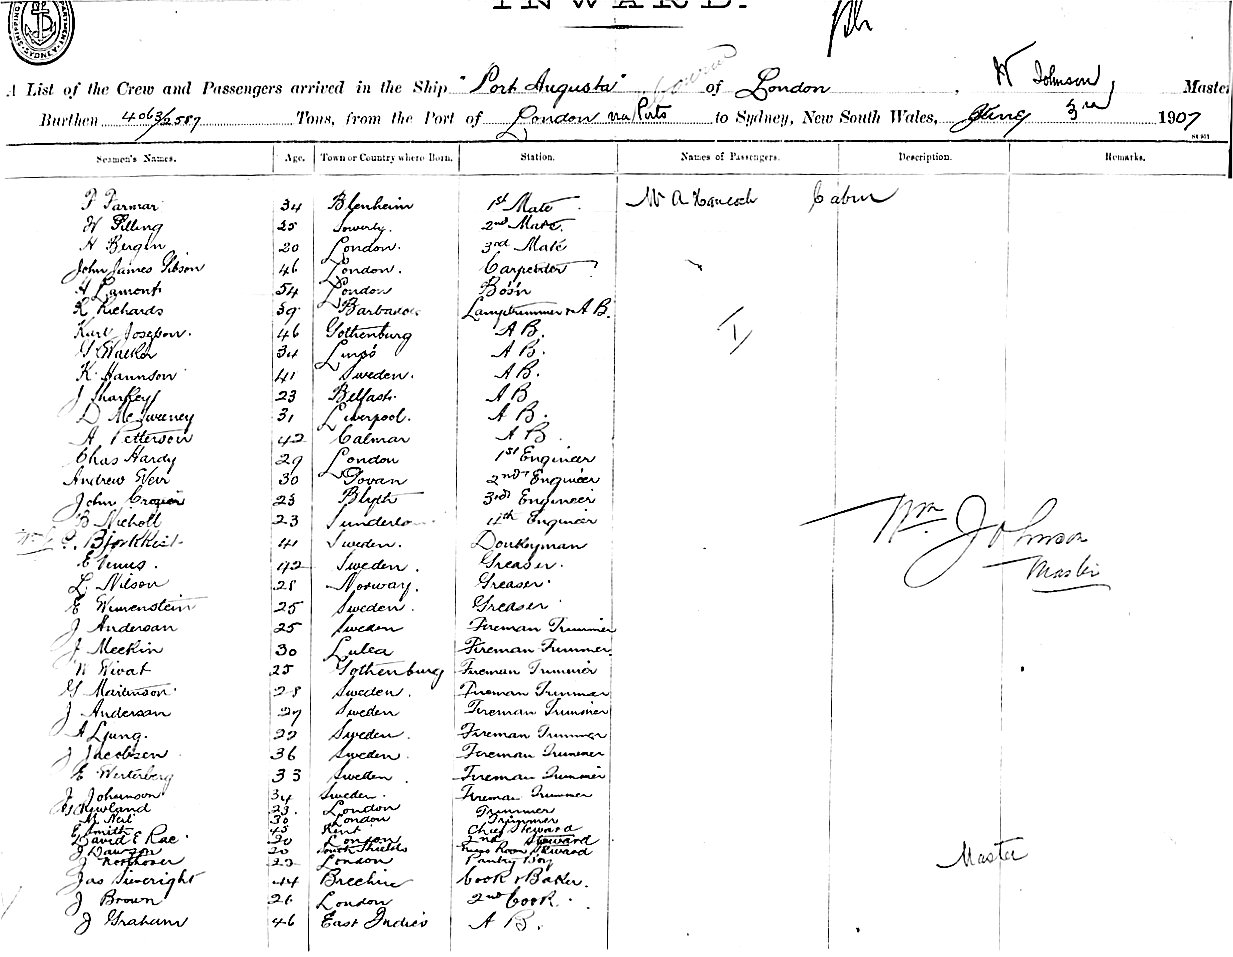 INWARD.
A List of the Crew and Passengers arrived in the Ship "Port Augusta" of London, W Johnson Master
Burthen 4063/2587 Tons, from the Port of London via Ports to Sydney, New South Wales, 3rd 1907
Seamen's Names. Age. Town or Country where Born. Station. Names of Passengers. Description. Remarks.
F Farmar 34 Blenheim 1st Mate Mr A Hancock Cabin
W Pilling 25 Sowerby. 2nd Mate.
H Bergin 20 London. 3rd Mate
John James Gibson 46 London. Carpenter
H Lamont 54 London Bo's'n
R Richards 39 Barbados Lamptrimmer & A B.
Karl Josefson. 46 Gothenburg A B.
G Walker 34 A B.
K Hannson 41 Sweden. A B.
J Sharkey 23 Belfast. A B
D McSweeney 31 Liverpool. A B.
A Petterson 42 Calmar A B.
Chas Hardy 29 London 1st Engineer
Andrew Weir 30 Govan 2nd Engineer
John 23 Blyth 3rd Engineer
B Nicholl 23 4th Engineer
41 Sweden. Donkeyman
E Venus. 42 Sweden. Greaser.
L Nilson 28 Norway. Greaser.
E 25 Sweden. Greaser
J Anderson 25 Sweden Fireman Trimmer
J Meekin 30 Lulea Fireman Trimmer
25 Gothenburg Fireman Trimmer
G Martinson 28 Sweden. Fireman Trimmer
J Anderson 27 Sweden Fireman Trimmer
A Ljung. 22 Sweden. Fireman Trimmer
J Jacobsen 36 Sweden. Fireman Trimmer
E Westerberg 33 Sweden Fireman Trimmer
J Johnson 34 Sweden. Fireman Trimmer
23. London Trimmer
30 London Trimmer
E Smith 45 Kent Chief Steward
David E Rae 20 London 2nd Steward
J Dawson 20 South Shields Mess Room Steward
J Northover 22 London Pantry Boy
Jas Sivewright 44 Brechin Cook & Baker.
J Brown 26 London 2nd Cook.
J Graham 46 East Indies A B.
Wm Johnson
Master
Master